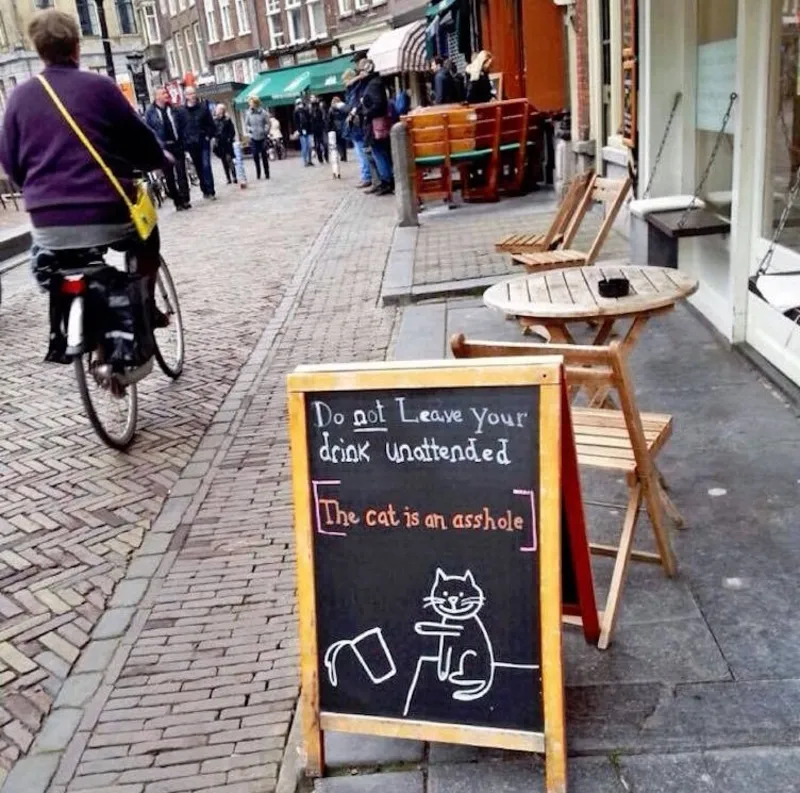 Do not Leave your
drink unattended
[The cat is an asshole]